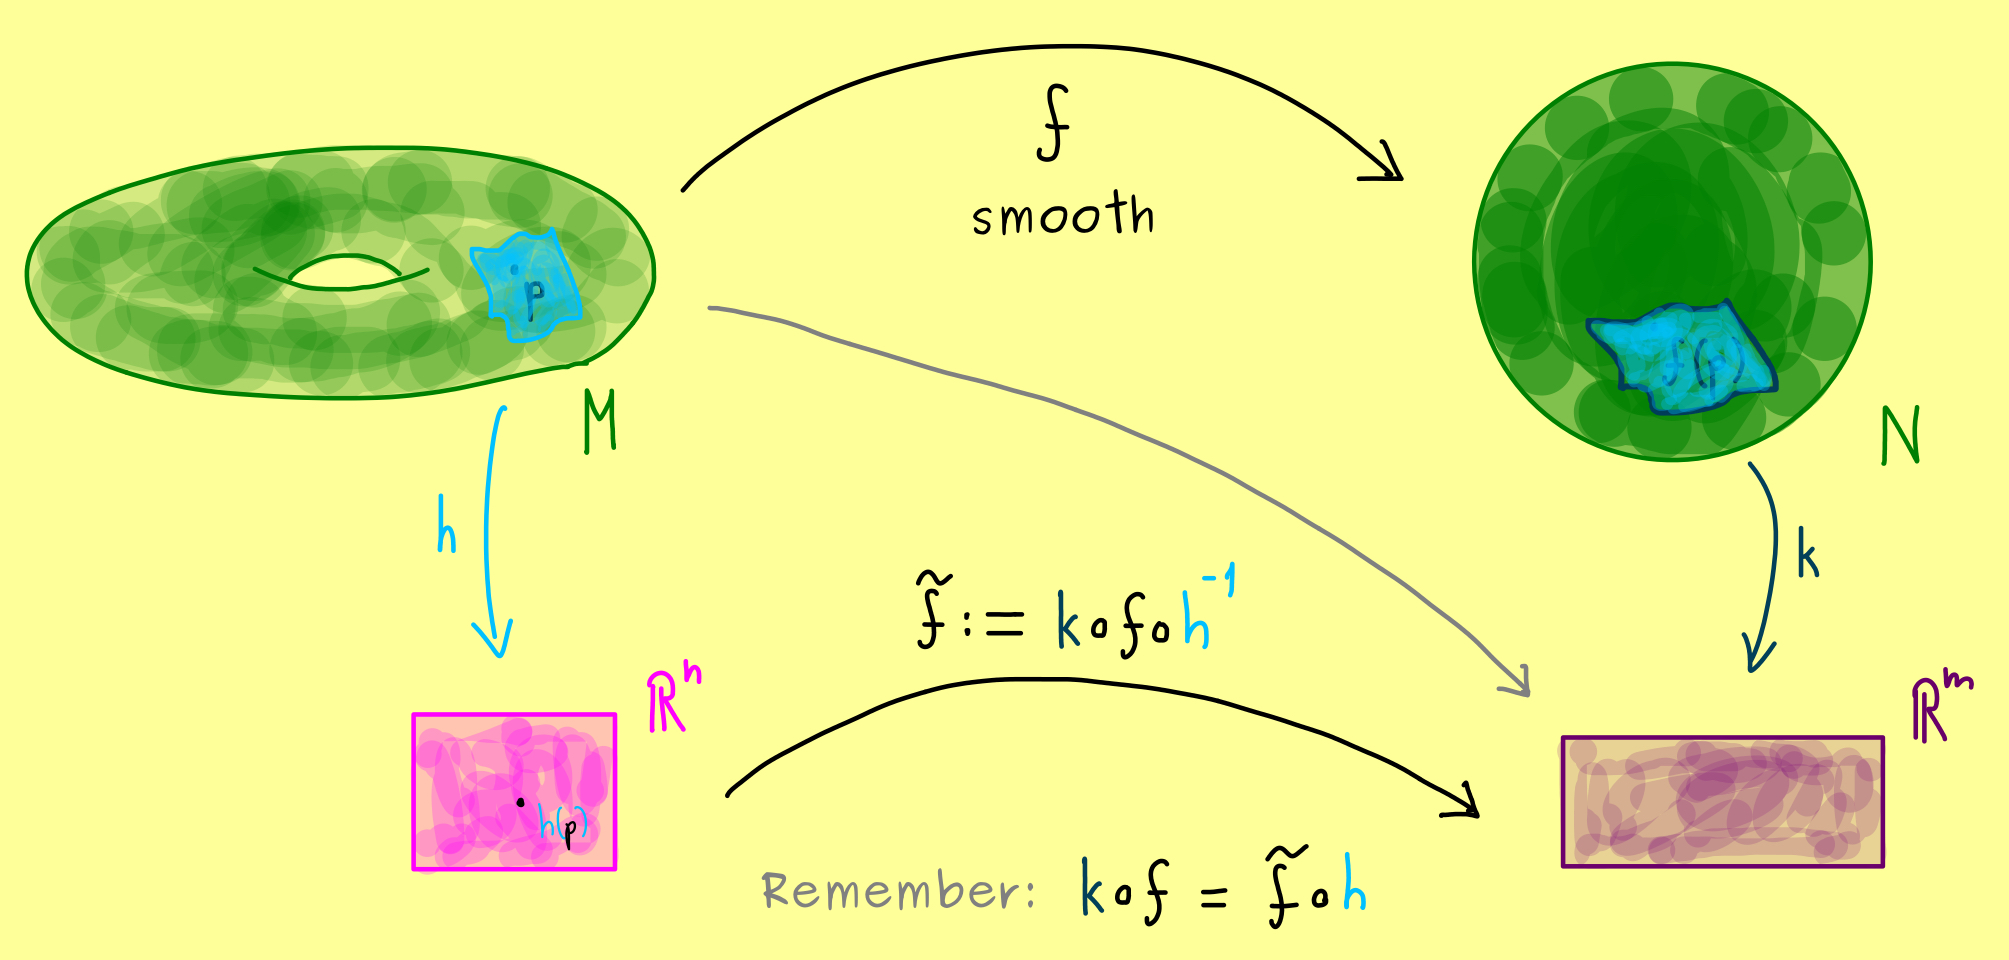 f
smooth
p
f(p)
M
N
h
k
f̃ := k∘f∘h⁻¹
ℝⁿ
ℝᵐ
h(p)
Remember: k∘f = f̃∘h